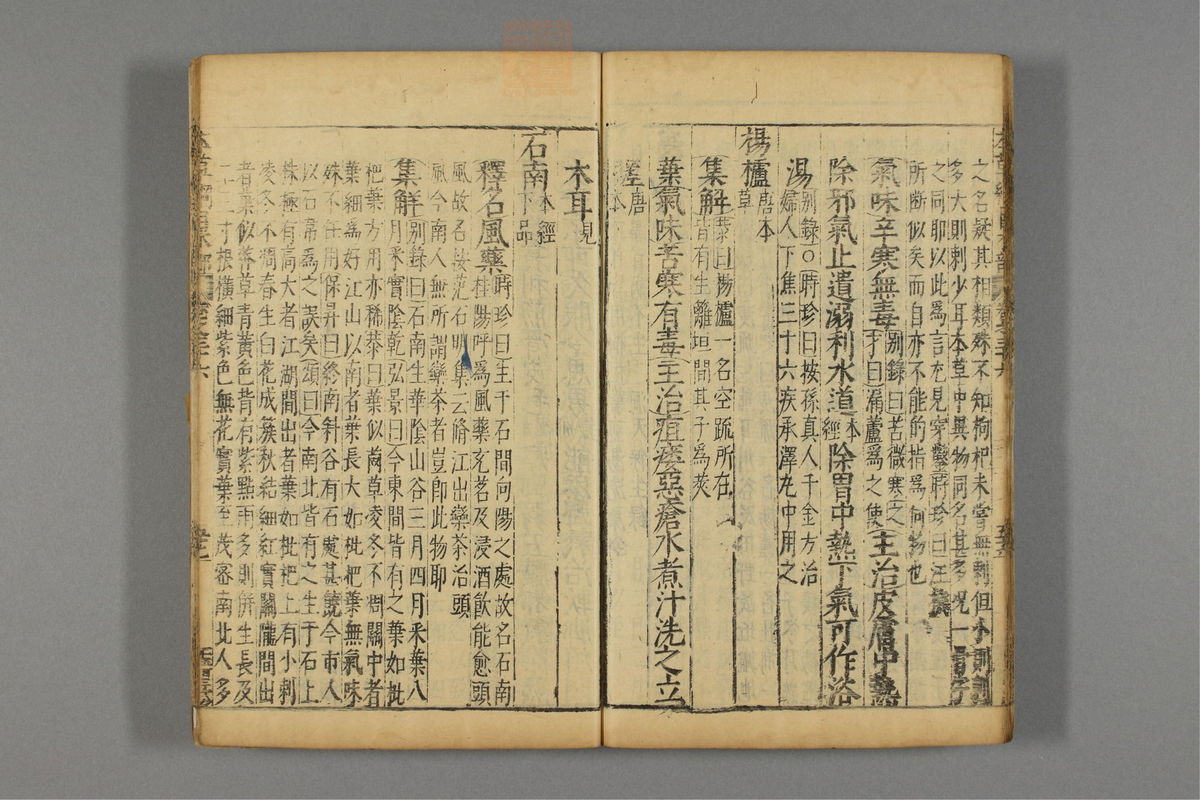 之名疑其相類殊不知枸杞未嘗無刺但小則刺
多大則刺少耳本草中異物同名甚多況一
之同耶以此為言尤見穿鑿時珍曰汪
所斷似矣而自亦不能的指為何物也
氣味辛寒無毒別錄曰苦微寒之才曰漏蘆為之使主治皮膚中熱
除邪氣止遺溺利水道本經除胃中熱下氣可作浴
湯別錄○時珍曰按孫真人千金方治婦人下焦三十六疾承澤丸中用之
楊櫨唐本草
集解恭曰楊櫨一名空疏所在皆有生籬垣間其子為莢
葉氣味苦寒有毒主治疽瘻惡瘡水煮汁洗之立
瘥唐本
木耳見
石南本經下品
釋名風藥時珍曰生于石間向陽之處故名石南
桂陽呼為風藥充茗及浸酒飲能愈頭
風故名按范石明集云脩江出欒茶治頭
風今南人無所謂欒茶者豈即此物耶
集解別錄曰石南生華陰山谷二月四月采葉八
月采實陰乾弘景曰今東間皆有之葉如枇
杷葉方用亦稀恭曰葉似䒽草凌冬不凋關中者
葉細為好江山以南者葉長大如枇杷葉無氣味
殊不任用保昇曰終南斜谷有石處甚饒今市人
以石葦為之誤矣頌曰今南北皆有之生于石上
株極有高大者江湖間出者葉如枇杷上有小刺
凌冬不凋春生白花成簇秋結細紅實關隴間出
者葉似莽草青黃色背有紫點雨多則併生長及
二三寸根橫細紫色無花實葉至茂密南北人多